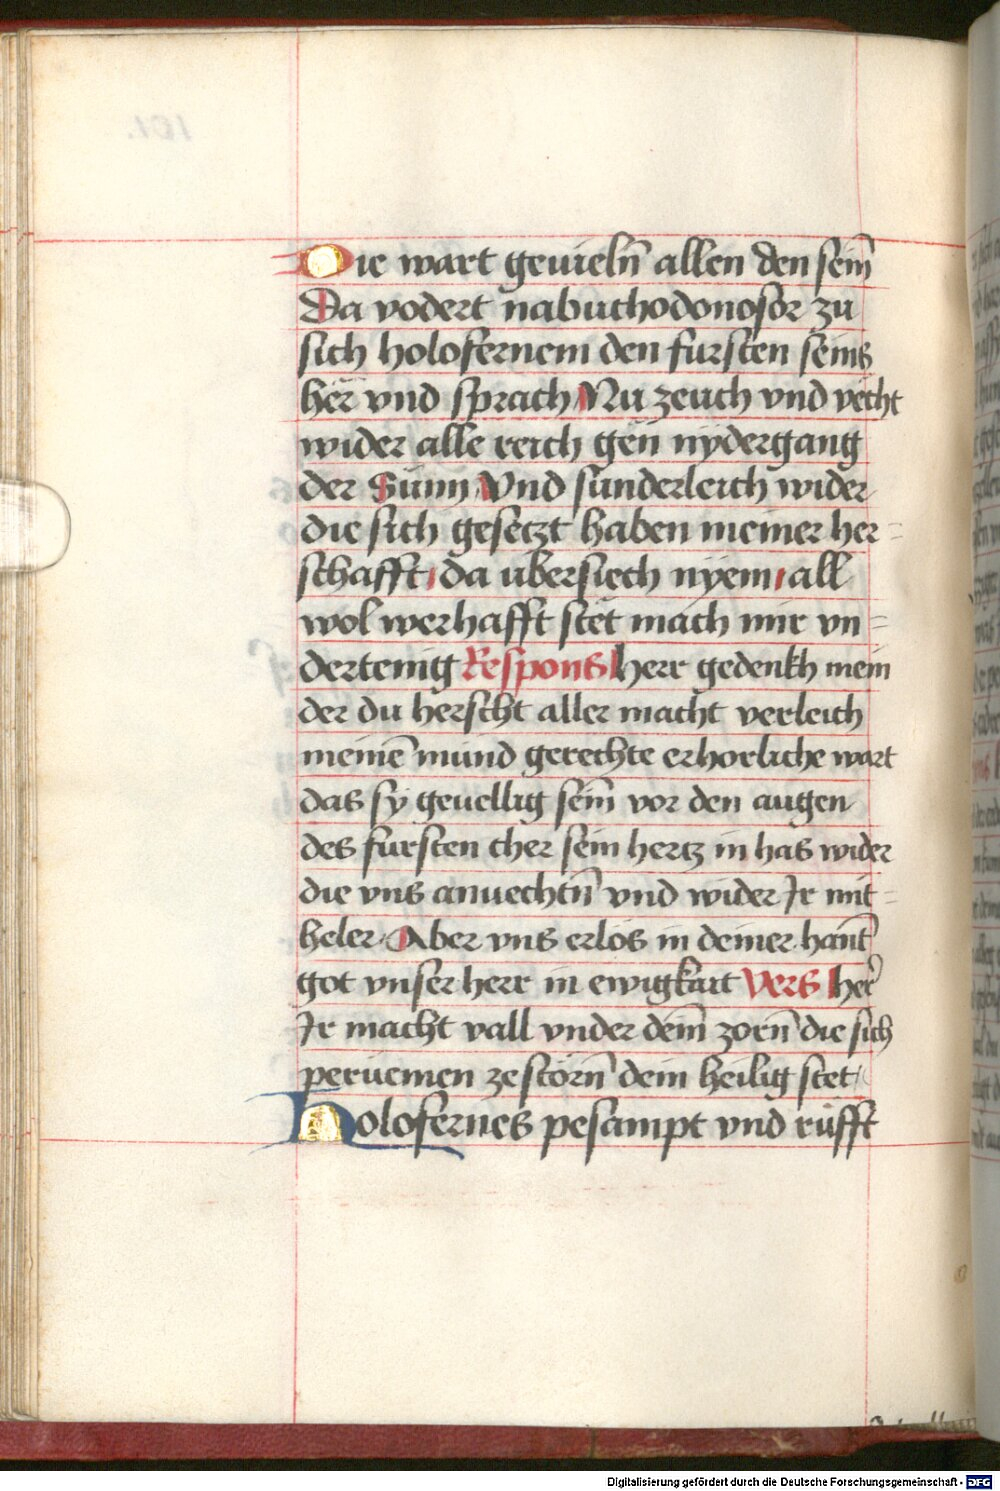 Die wart geuieln̄ allen den sein̄
Da vodert nabuchodonosor zu
sich holofernem den fursten seins
her vnd sprach Nu zeuch vnd vecht
wider alle reich gen nydergang
der Sunn Vnd sunderleich wider
die sich gesetzt haben meiner her=
schafft da ubersiech nyem all
wol werhafft stet mach mir vn=
dertenig Respons herr gedenkh mein
der du herscht aller macht verleich
meinē mund gerechte erhorliche wart
das sy geuellig sein̄ vor den augen
des fursten cher sein hertz in has wider
die vns anuechtn̄ vnd wider Ir mit=
heler Aber vns erlos in deiner hant
got vnser herr in ewigkait Vers her
Ir macht vall vnder dein̄ zorn̄ die sich
peruemen zestorn̄ dein heilig stet
Holofernes pesampt vnd rufft
101.
Digitalisierung gefördert durch die Deutsche Forschungsgemeinschaft - DFG